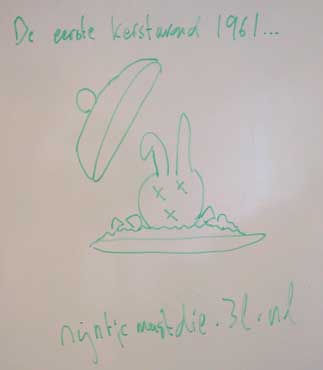 De eerste kerstavond 1961...
nijntje moet die.3l.nl